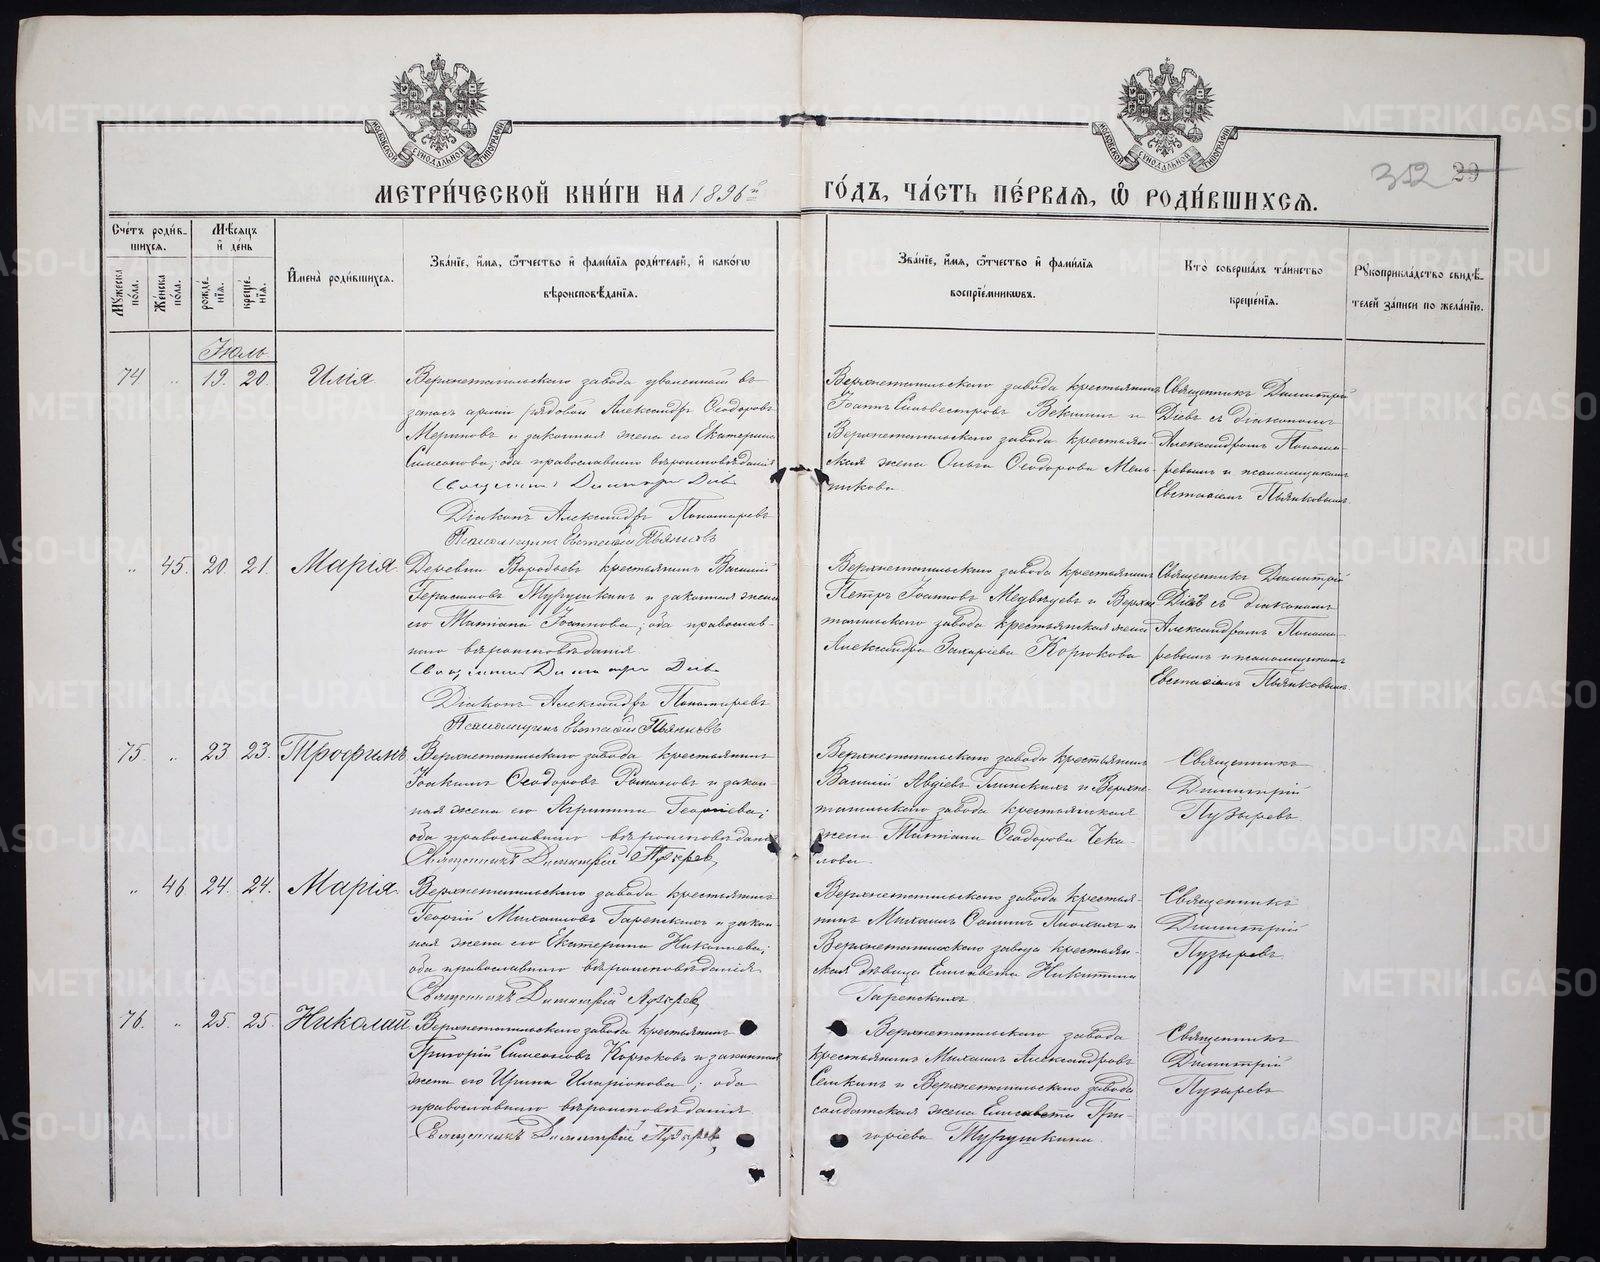 МОСКОВСКОЙ СѴНОДАЛЬНОЙ ТИПОГРАФІИ
МОСКОВСКОЙ СѴНОДАЛЬНОЙ ТИПОГРАФІИ
352 29
МЕТРИ́ЧЕСКОЙ КНИ́ГИ НА 1896й ГО́ДЪ, ЧА́СТЬ ПЕ́РВАЯ, Ѡ РОДИ́ВШИХСЯ.
Сче́тъ роди́в-
шихся.
Мꙋжеска по́ла.
Же́нска по́ла.
Мѣ́сяцъ
и҆ де́нь
рожде́-
нїя.
креще́-
нїя.
И҆мена̀ роди́вшихся.
Зва́нїе, и҆́мя, ѻ҆́тчество и҆ фами́лїя роди́телей, и҆ како́гѡ
вѣроисповѣ́данїя.
Зва́нїе, и҆́мя, ѻ҆́тчество и҆ фами́лїя
воспрїе́мникѡвъ.
Кто̀ соверша́лъ та́инство
креще́нїя.
Рꙋкоприкла́дство свидѣ́-
телей за́писи по жела́нїю.
Іюль.
74 „ 19. 20. Илія
Верхнетагильскаго завода уволенный въ
запасъ арміи рядовой Александръ Ѳеодоровъ
Мериновъ и законная жена его Екатерина
Симеонова; оба православнаго вѣроисповѣданія
Священникъ Димитрій Діевъ
Діаконъ Александръ Пономаревъ
Псаломщикъ Евстафій Пьянковъ
Верхнетагильскаго завода крестьянинъ
Іоаннъ Сильвестровъ Векшинъ и
Верхнетагильскаго завода крестьян-
ская жена Ольга Ѳеодорова Мель-
никова
Священникъ Димитрій
Діевъ съ діакономъ
Александромъ Понома-
ревымъ и псаломщикомъ
Евстафіемъ Пьянковымъ
„ 45. 20 21. Марія
Деревни Воробьевъ крестьянинъ Василій
Герасимовъ Мургушкинъ и законная жена
его Татіана Іоаннова; оба православ-
наго вѣроисповѣданія
Священникъ Димитрій Діевъ
Діаконъ Александръ Пономаревъ
Псаломщикъ Евстафій Пьянковъ
Верхнетагильскаго завода крестьянинъ
Петръ Іоанновъ Медвѣдевъ и Верхне-
тагильскаго завода крестьянская жена
Александра Захаріева Корюкова
Священникъ Димитрій
Діевъ съ діакономъ
Александромъ Понома-
ревымъ и псаломщикомъ
Евстафіемъ Пьянковымъ
75. „ 23 23. Трофимъ
Верхнетагильскаго завода крестьянинъ
Іоакимъ Ѳеодоровъ Романовъ и закон-
ная жена его Агрипина Георгіева;
оба православнаго вѣроисповѣданія
Священникъ Димитрій Пузыревъ
Верхнетагильскаго завода крестьянинъ
Василій Авдіевъ Глинскихъ и Верхне-
тагильскаго завода крестьянская
жена Татіана Ѳеодорова Чека-
лова
Священникъ
Димитрій
Пузыревъ
„ 46 24. 24. Марія
Верхнетагильскаго завода крестьянинъ
Георгій Михаиловъ Гаренскихъ и закон-
ная жена его Екатерина Никитьева;
оба православнаго вѣроисповѣданія
Священникъ Димитрій Пузыревъ
Верхнетагильскаго завода крестья-
нинъ Михаилъ и
Верхнетагильскаго завода крестьян-
ская дѣвица Елисавета Никитина
Гаренскихъ
Священникъ
Димитрій
Пузыревъ
76. „ 25. 25. Николай
Верхнетагильскаго завода крестьянинъ
Григорій Симеоновъ Корюковъ и законная
жена его Ирина Иларіонова; оба
православнаго вѣроисповѣданія
Священникъ Димитрій Пузыревъ
Верхнетагильскаго завода
крестьянинъ Михаилъ Александровъ
Семкинъ и Верхнетагильскаго завода
солдатская жена Елисавета Гри-
горіева Мургушкина.
Священникъ
Димитрій
Пузыревъ
METRIKI.GASO-URAL.RU